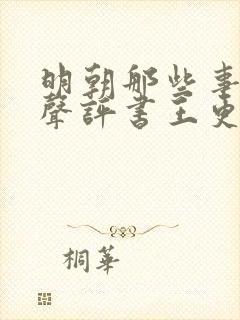 明朝那些事
聲評書王更
桐華